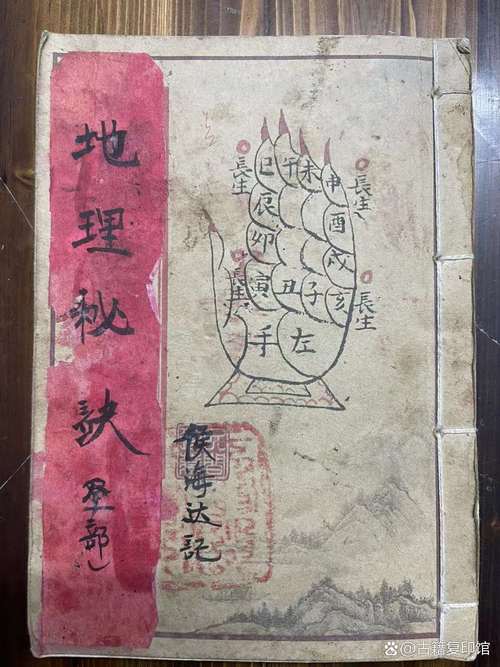 地理秘訣
部
長生
巳午未申
長生
辰酉
卯戌
長生
寅丑子亥
長生
左手
侯海达記
古籍复印馆